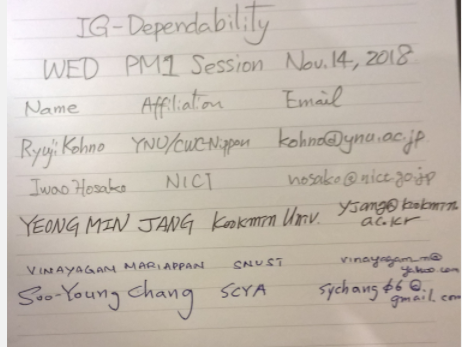 IG-Dependability
WED PM1 Session Nov. 14, 2018
Name Affiliation Email
Ryuji Kohno YNU/CWC-Nippon kohno@ynu.ac.jp
Iwao Hosako NICT hosako@nict.go.jp
YEONG MIN JANG Kookmin Univ. yjang@kookmin.
ac.kr
VINAYAGAM MARIAPPAN SNUST vinayagam_m@
yahoo.com
Soo-Young Chang SCYA sychang66@
gmail.com